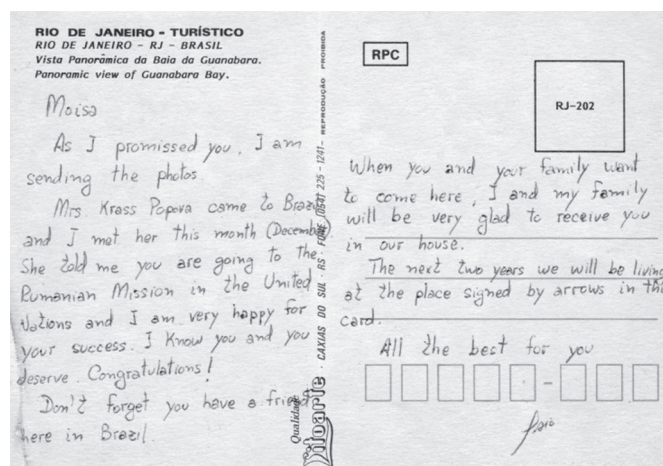 RIO DE JANEIRO - TURÍSTICO
RIO DE JANEIRO - RJ - BRASIL
Vista Panorâmica da Baia da Guanabara.
Panoramic view of Guanabara Bay.
Moisa
As I promissed you, I am
sending the photos.
Mrs. Krass Popova came to Brazil
and I met her this month (December).
She told me you are going to the
Rumanian Mission in the United
Nations and I am very happy for
your success. I Know you and you
deserve. Congratulations!
Don't forget you have a friend
here in Brazil.
CAXIAS DO SUL - RS - FONE (054) 225-1241 - REPRODUÇÃO PROIBIDA
Qualidade
RPC
RJ-202
When you and your family want
to come here, I and my family
will be very glad to receive you
in our house.
The next two years we will be living
at the place signed by arrows in this
card.
All the best for you